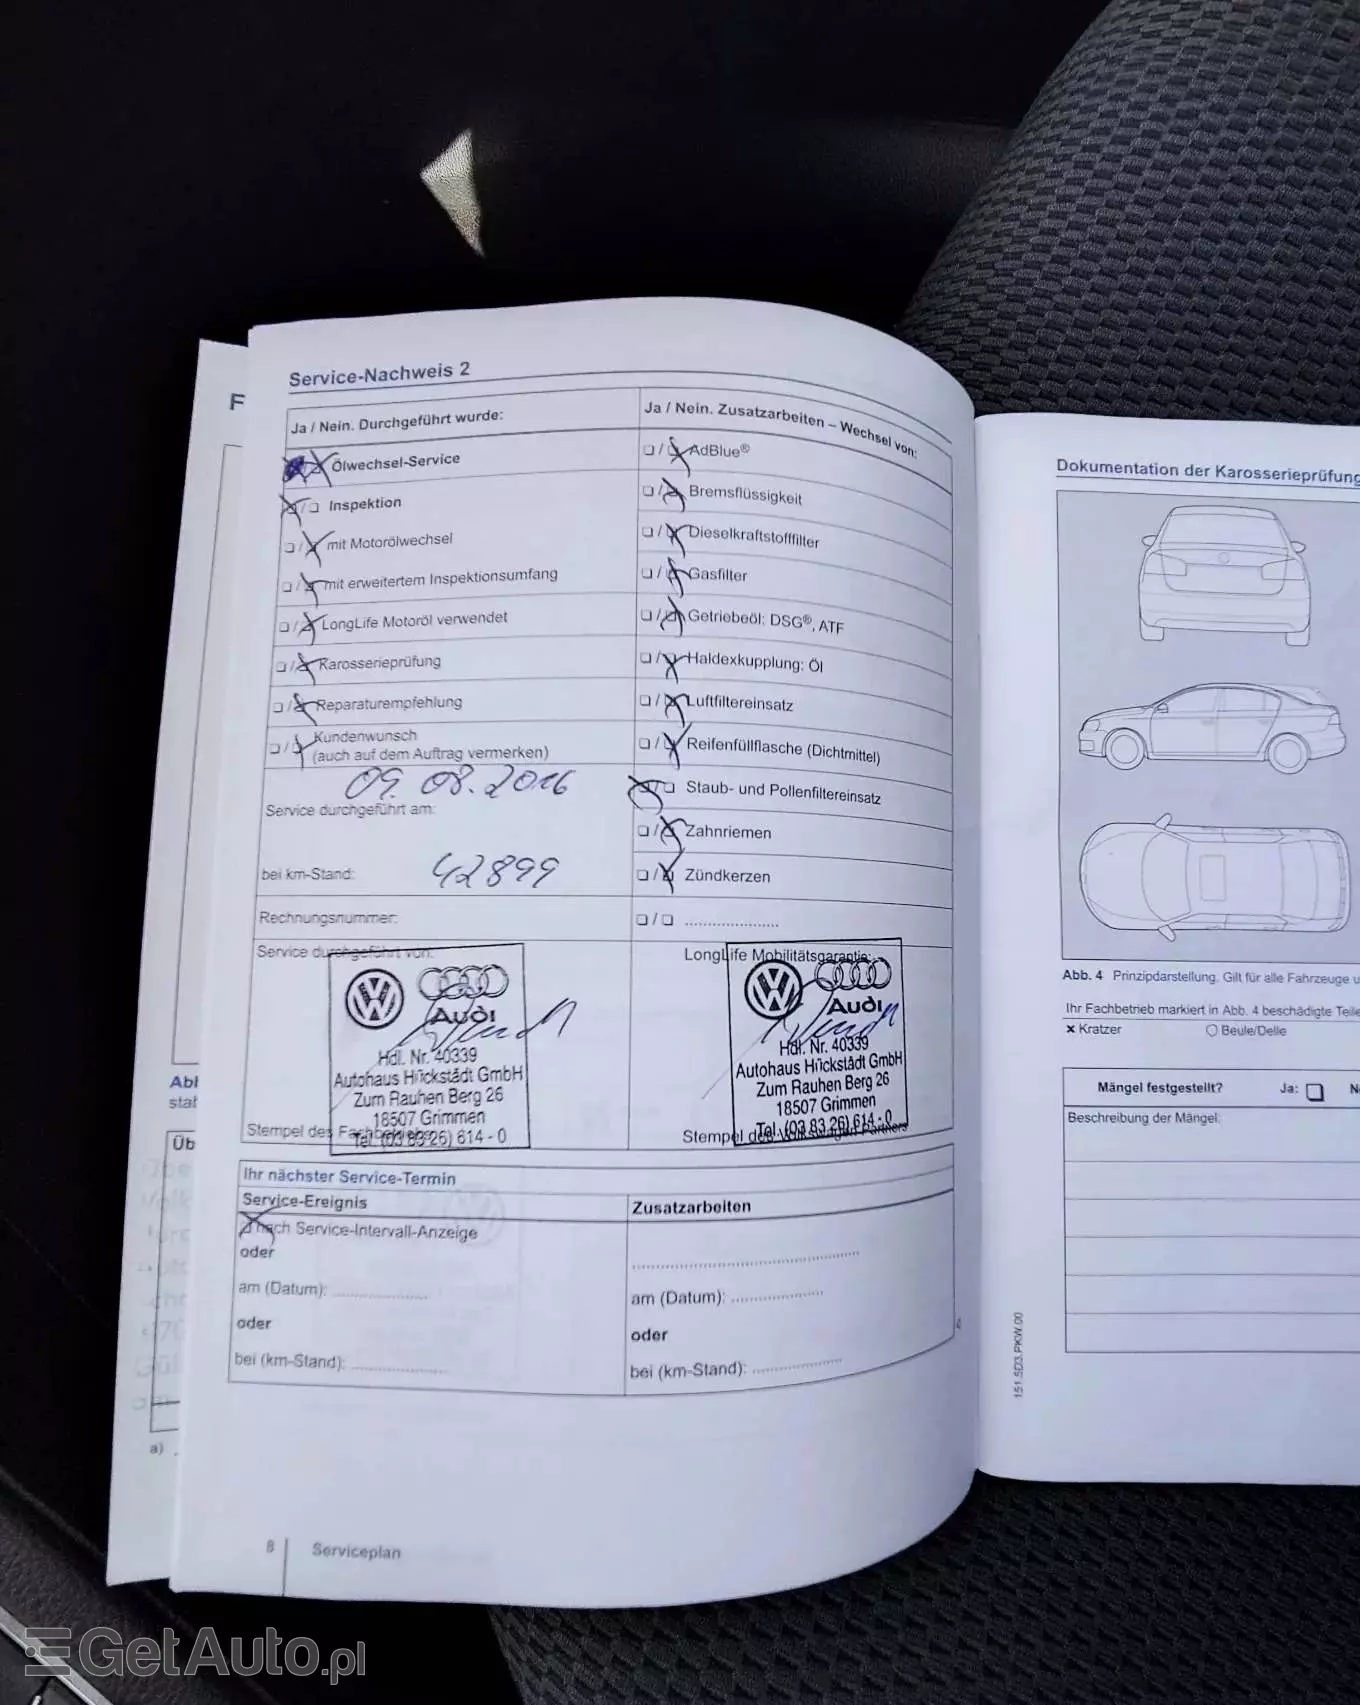 F
Service-Nachweis 2
Ja / Nein. Durchgeführt wurde:
Ölwechsel-Service
Inspektion
mit Motorölwechsel
mit erweitertem Inspektionsumfang
LongLife Motoröl verwendet
Karosserieprüfung
Reparaturempfehlung
Kundenwunsch
(auch auf dem Auftrag vermerken)
09.08.2016
Service durchgeführt am:
bei km-Stand: 42899
Rechnungsnummer:
Service durchgeführt von:
Audi
Hdl. Nr. 40339
Autohaus Hückstädt GmbH
Zum Rauhen Berg 26
18507 Grimmen
Tel. (03 83 26) 614 - 0
Stempel des Fachbetriebs
Ja / Nein. Zusatzarbeiten – Wechsel von:
AdBlue®
Bremsflüssigkeit
Dieselkraftstofffilter
Gasfilter
Getriebeöl: DSG®, ATF
Haldexkupplung: Öl
Luftfiltereinsatz
Reifenfüllflasche (Dichtmittel)
Staub- und Pollenfiltereinsatz
Zahnriemen
Zündkerzen
/ ......................
LongLife Mobilitätsgarantie:
Audi
Hdl. Nr. 40339
Autohaus Hückstädt GmbH
Zum Rauhen Berg 26
18507 Grimmen
Tel. (03 83 26) 614 - 0
Stempel des Volkswagen Partners
Ihr nächster Service-Termin
Service-Ereignis
nach Service-Intervall-Anzeige
oder
am (Datum):
oder
bei (km-Stand):
Zusatzarbeiten
am (Datum):
oder
bei (km-Stand):
8 Serviceplan
Abl
stat
Üb
a)
Dokumentation der Karosserieprüfung
Abb. 4 Prinzipdarstellung. Gilt für alle Fahrzeuge u
Ihr Fachbetrieb markiert in Abb. 4 beschädigte Teile
x Kratzer
Beule/Delle
Mängel festgestellt? Ja: N
Beschreibung der Mängel:
151.5D3.PKW.00
GetAuto.pl